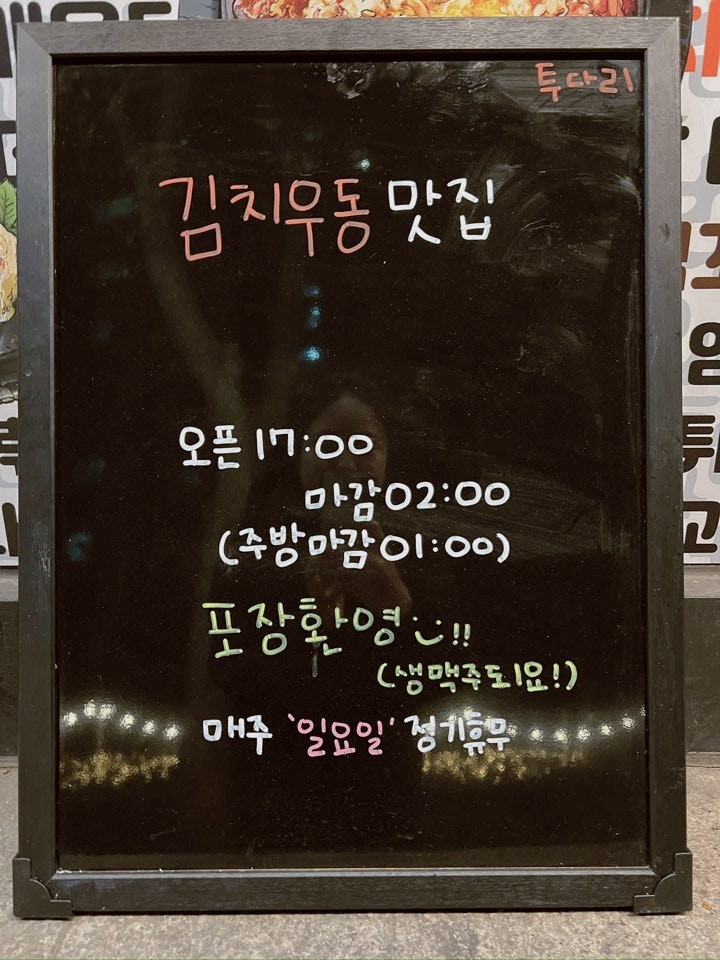 투다리
김치우동 맛집
오픈 17:00
마감 02:00
(주방마감 01:00)
포장환영!!
(생맥주도!요!)
매주 '일요일' 정기휴무